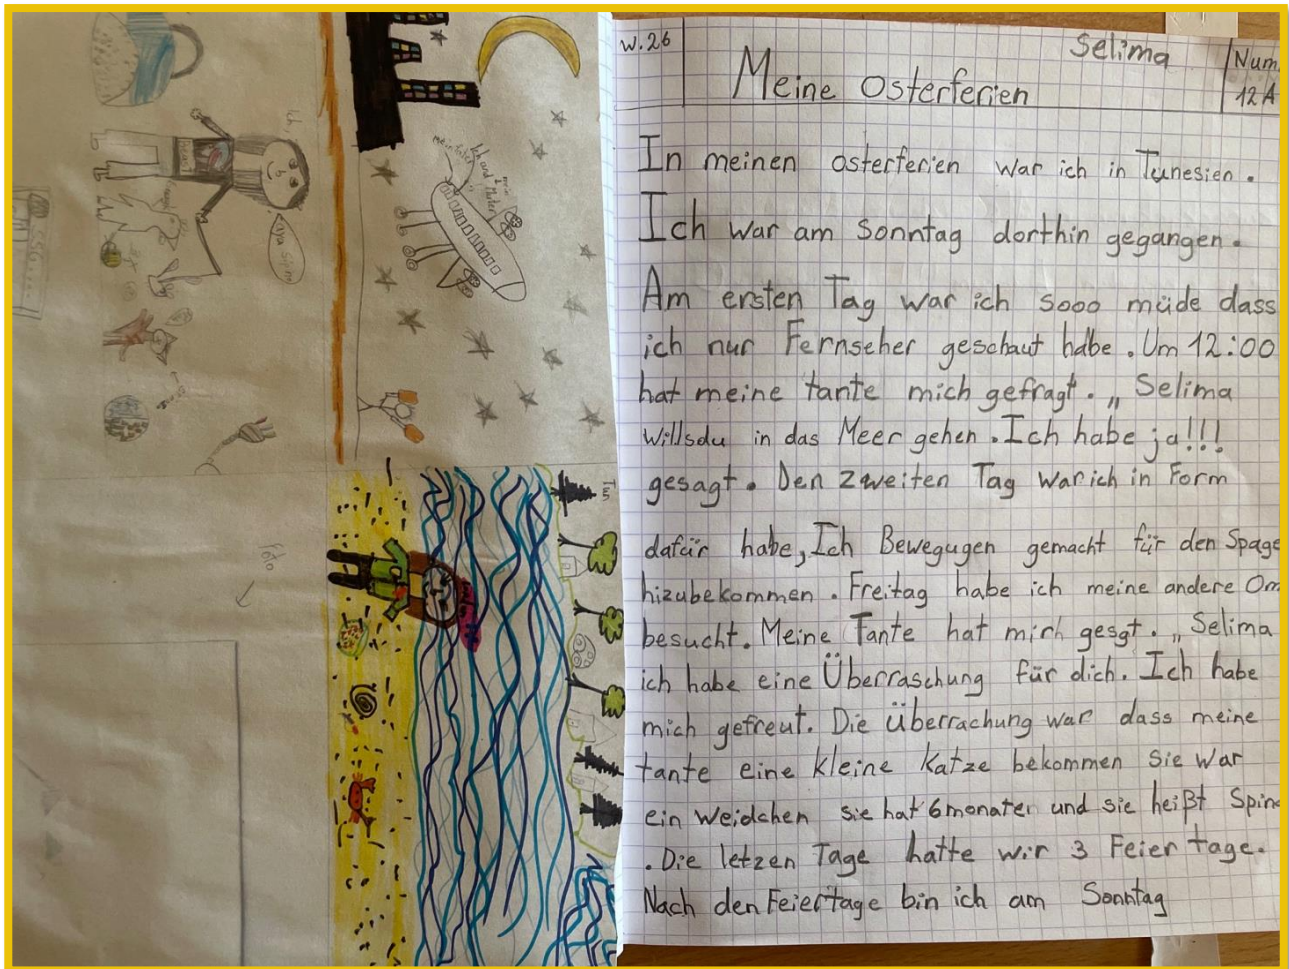 w.26
Selima
Num.
12A
Meine Osterferien
In meinen osterferien war ich in Tunesien.
Ich war am Sonntag dorthin gegangen.
Am ersten Tag war ich sooo müde dass
ich nur Fernseher geschaut habe. Um 12:00
hat meine tante mich gefragt. „Selima
willsdu in das Meer gehen. Ich habe ja!!!
gesagt. Den zweiten Tag war ich in Form
dafür habe, Ich Bewegugen gemacht für den Spage
hizubekommen. Freitag habe ich meine andere Om
besucht. Meine Tante hat mich gesgt. „Selima
ich habe eine Überraschung für dich. Ich habe
mich gefreut. Die überrachung war dass meine
tante eine kleine Katze bekommen sie war
ein Weidchen sie hat 6monaten und sie heißt Spin
. Die letzen Tage hatte wir 3 Feier tage.
Nach den Feiertage bin ich am Sonntag
Ich
mein Vater
Ich und meine
Mutter
Tun
Foto